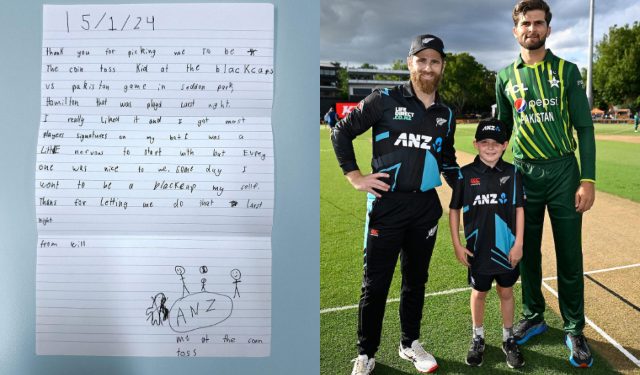 15/1/24
Thank you for picking me To be
The coin toss kid at the blackcaps
vs pakistan game in seddon park,
Hamilton that was playd last night.
I really liked it and I got most
players signatures on my bat I was a
Litle nervous to start with but Every
one was nice to me. some day I
want to be a blackcap my self.
Thans for letting me do that last
night
from will
ANZ
me at the coin
toss
LIFE
DIRECT
ANZ
ANZ
ANZ
pepsi
PAKISTAN